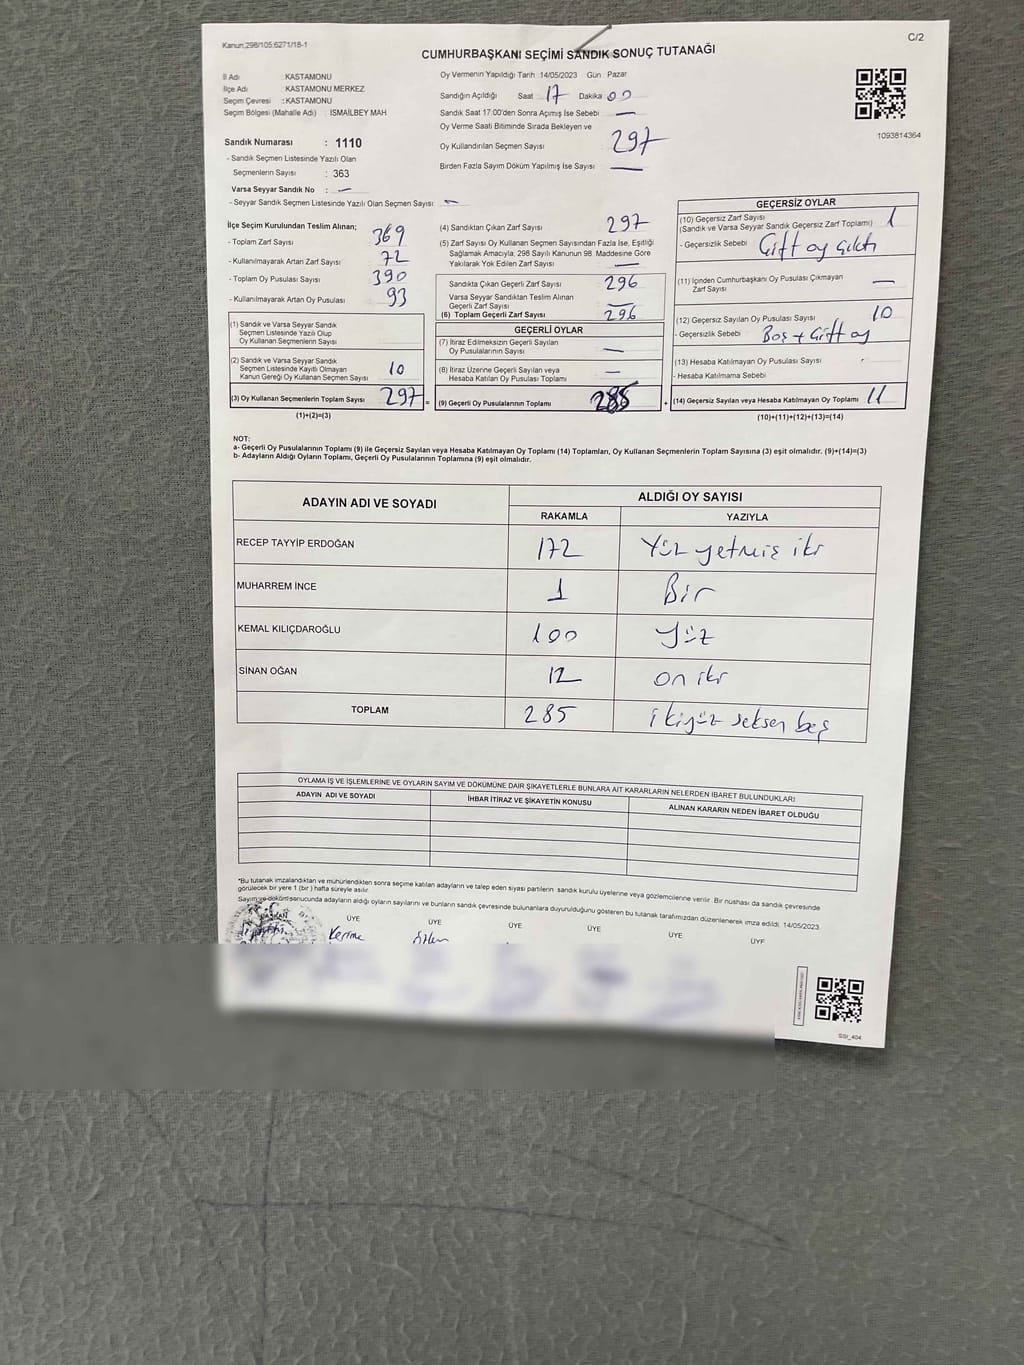 Kanun:298/105;6271/18-1
C/2
CUMHURBAŞKANI SEÇİMİ SANDIK SONUÇ TUTANAĞI
İl Adı : KASTAMONU
İlçe Adı : KASTAMONU MERKEZ
Seçim Çevresi : KASTAMONU
Seçim Bölgesi (Mahalle Adı) : İSMAİLBEY MAH
Sandık Numarası : 1110
- Sandık Seçmen Listesinde Yazılı Olan
Seçmenlerin Sayısı : 363
Varsa Seyyar Sandık No : —
- Seyyar Sandık Seçmen Listesinde Yazılı Olan Seçmen Sayısı : —
Oy Vermenin Yapıldığı Tarih :14/05/2023 Gün : Pazar
Sandığın Açıldığı Saat 17 Dakika 00
Sandık Saat 17:00'den Sonra Açımış İse Sebebi —
Oy Verme Saati Bitiminde Sırada Bekleyen ve
Oy Kullandırılan Seçmen Sayısı : 297
Birden Fazla Sayım Döküm Yapılmış İse Sayısı : —
1093814364
İlçe Seçim Kurulundan Teslim Alınan;
- Toplam Zarf Sayısı 369
- Kullanılmayarak Artan Zarf Sayısı : 72
- Toplam Oy Pusulası Sayısı : 390
- Kullanılmayarak Artan Oy Pusulası : 93
(1) Sandık ve Varsa Seyyar Sandık
Seçmen Listesinde Yazılı Olup
Oy Kullanan Seçmenlerin Sayısı :
(2) Sandık ve Varsa Seyyar Sandık
Seçmen Listesinde Kayıtlı Olmayan
Kanun Gereği Oy Kullanan Seçmen Sayısı : 10
(3) Oy Kullanan Seçmenlerin Toplam Sayısı : 297 =
(1)+(2)=(3)
(4) Sandıktan Çıkan Zarf Sayısı : 297
(5) Zarf Sayısı Oy Kullanan Seçmen Sayısından Fazla İse, Eşitliği
Sağlamak Amacıyla, 298 Sayılı Kanunun 98. Maddesine Göre
Yakılarak Yok Edilen Zarf Sayısı : —
Sandıkta Çıkan Geçerli Zarf Sayısı : 296
Varsa Seyyar Sandıktan Teslim Alınan
Geçerli Zarf Sayısı : —
(6) Toplam Geçerli Zarf Sayısı : 296
GEÇERLİ OYLAR
(7) İtiraz Edilmeksizin Geçerli Sayılan
Oy Pusulalarının Sayısı : —
(8) İtiraz Üzerine Geçerli Sayılan veya
Hesaba Katılan Oy Pusulası Toplamı : —
(9) Geçerli Oy Pusulalarının Toplamı : 285 +
GEÇERSİZ OYLAR
(10) Geçersiz Zarf Sayısı : 1
(Sandık ve Varsa Seyyar Sandık Geçersiz Zarf Toplamı)
- Geçersizlik Sebebi : Çift oy çıktı
(11) İçinden Cumhurbaşkanı Oy Pusulası Çıkmayan
Zarf Sayısı : —
(12) Geçersiz Sayılan Oy Pusulası Sayısı : 10
- Geçersizlik Sebebi : Boş + Çift oy
(13) Hesaba Katılmayan Oy Pusulası Sayısı :
- Hesaba Katılmama Sebebi :
(14) Geçersiz Sayılan veya Hesaba Katılmayan Oy Toplamı : 11
(10)+(11)+(12)+(13)=(14)
NOT:
a- Geçerli Oy Pusulalarının Toplamı (9) ile Geçersiz Sayılan veya Hesaba Katılmayan Oy Toplamı (14) Toplamları, Oy Kullanan Seçmenlerin Toplam Sayısına (3) eşit olmalıdır. (9)+(14)=(3)
b- Adayların Aldığı Oyların Toplamı, Geçerli Oy Pusulalarının Toplamına (9) eşit olmalıdır.
ADAYIN ADI VE SOYADI ALDIĞI OY SAYISI
RAKAMLA YAZIYLA
RECEP TAYYİP ERDOĞAN 172 Yüz yetmiş iki
MUHARREM İNCE 1 Bir
KEMAL KILIÇDAROĞLU 100 Yüz
SİNAN OĞAN 12 on iki
TOPLAM 285 ikiyüz seksen beş
OYLAMA İŞ VE İŞLEMLERİNE VE OYLARIN SAYIM VE DÖKÜMÜNE DAİR ŞİKAYETLERLE BUNLARA AİT KARARLARIN NELERDEN İBARET BULUNDUKLARI
ADAYIN ADI VE SOYADI İHBAR İTİRAZ VE ŞİKAYETİN KONUSU ALINAN KARARIN NEDEN İBARET OLDUĞU
*Bu tutanak imzalandıktan ve mühürlendikten sonra seçime katılan adayların ve talep eden siyasi partilerin sandık kurulu üyelerine veya gözlemcilerine verilir. Bir nüshası da sandık çevresinde
görülecek bir yere 1 (bir ) hafta süreyle asılır.
Sayım ve döküm sonucunda adayların aldığı oyların sayılarını ve bunların sandık çevresinde bulunanlara duyurulduğunu gösteren bu tutanak tarafımızdan düzenlenerek imza edildi. 14/05/2023
ÜYE ÜYE ÜYE ÜYE ÜYE ÜYE
Kerime
SSI_404